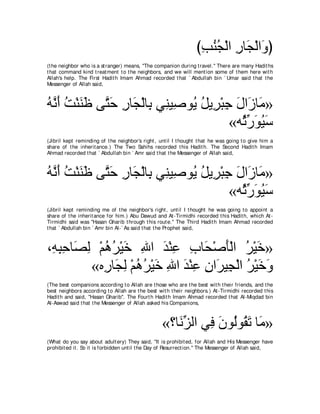 (وَالْجَارِ الْجُنُبِ)
(the neighbor who is a stranger) means, "The companion during travel." There are many Hadiths
that command kind treatment to the neighbors, and we will mention some of them here with
Allah's help. The first Hadith Imam Ahmad recorded that `Abdullah bin `Umar said that the
Messenger of Allah said,
«مَازَالَ جِبْرِيلُ يُوصِينِي بِالْجَارِ حَتَّى ظَنَنْتُ أَنَّهُ
سَيُوَرِّثُه»
(Jibril kept reminding of the neighbor's right, until I thought that he was going to give him a
share of the inheritance.) The Two Sahihs recorded this Hadith. The Second Hadith Imam
Ahmad recorded that `Abdullah bin `Amr said that the Messenger of Allah said,
«مَازَالَ جِبْرِيلُ يُوصِينِي بِالْجَارِ حَتَّى ظَنَنْتُ أَنَّهُ
سَيُوَرِّثُه»
(Jibril kept reminding me of the neighbor's right, until I thought he was going to appoint a
share of the inheritance for him.) Abu Dawud and At-Tirmidhi recorded this Hadith, which At-
Tirmidhi said was "Hasan Gharib through this route." The Third Hadith Imam Ahmad recorded
that `Abdullah bin `Amr bin Al-`As said that the Prophet said,
«خَيْرُ الْأَصْحَابِ عِنْدَ اللهِ خَيْرُهُمْ لِصَاحِبِهِ،
وَخَيْرُ الْجِيرَانِ عِنْدَ اللهِ خَيْرُهُمْ لِجَارِه»
(The best companions according to Allah are those who are the best with their friends, and the
best neighbors according to Allah are the best with their neighbors.) At-Tirmidhi recorded this
Hadith and said, "Hasan Gharib". The Fourth Hadith Imam Ahmad recorded that Al-Miqdad bin
Al-Aswad said that the Messenger of Allah asked his Companions,
«مَا تَقُولُونَ فِي الزِّنَا؟»
(What do you say about adultery) They said, "It is prohibited, for Allah and His Messenger have
prohibited it. So it is forbidden until the Day of Resurrection." The Messenger of Allah said,